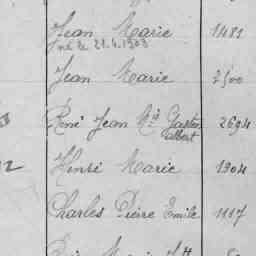 Jean Marie 1481
né le 21.4.1903
Jean Marie 2500
3 René Jean Mie Gaston 2694
albert
2 Henri Marie 1904
Charles Pierre Emile 1117